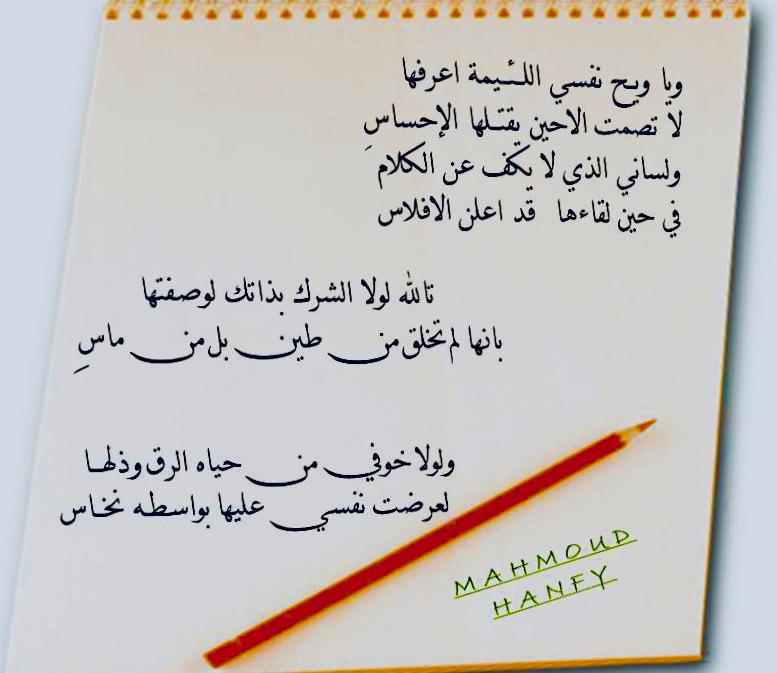 ويا ويح نفسي اللئيمة اعرفها
لا تصمت الاحين يقتلها الإحساسِ
ولساني الذي لا يكف عن الكلام
في حين لقاءها قد اعلن الافلاس
تالله لولا الشرك بذاتك لوصفتها
بانها لم تخلق من طين بل من ماسِ
ولولا خوفي من حياه الرق وذلها
لعرضت نفسي عليها بواسطه نخاس
MAHMOUD
HANFY